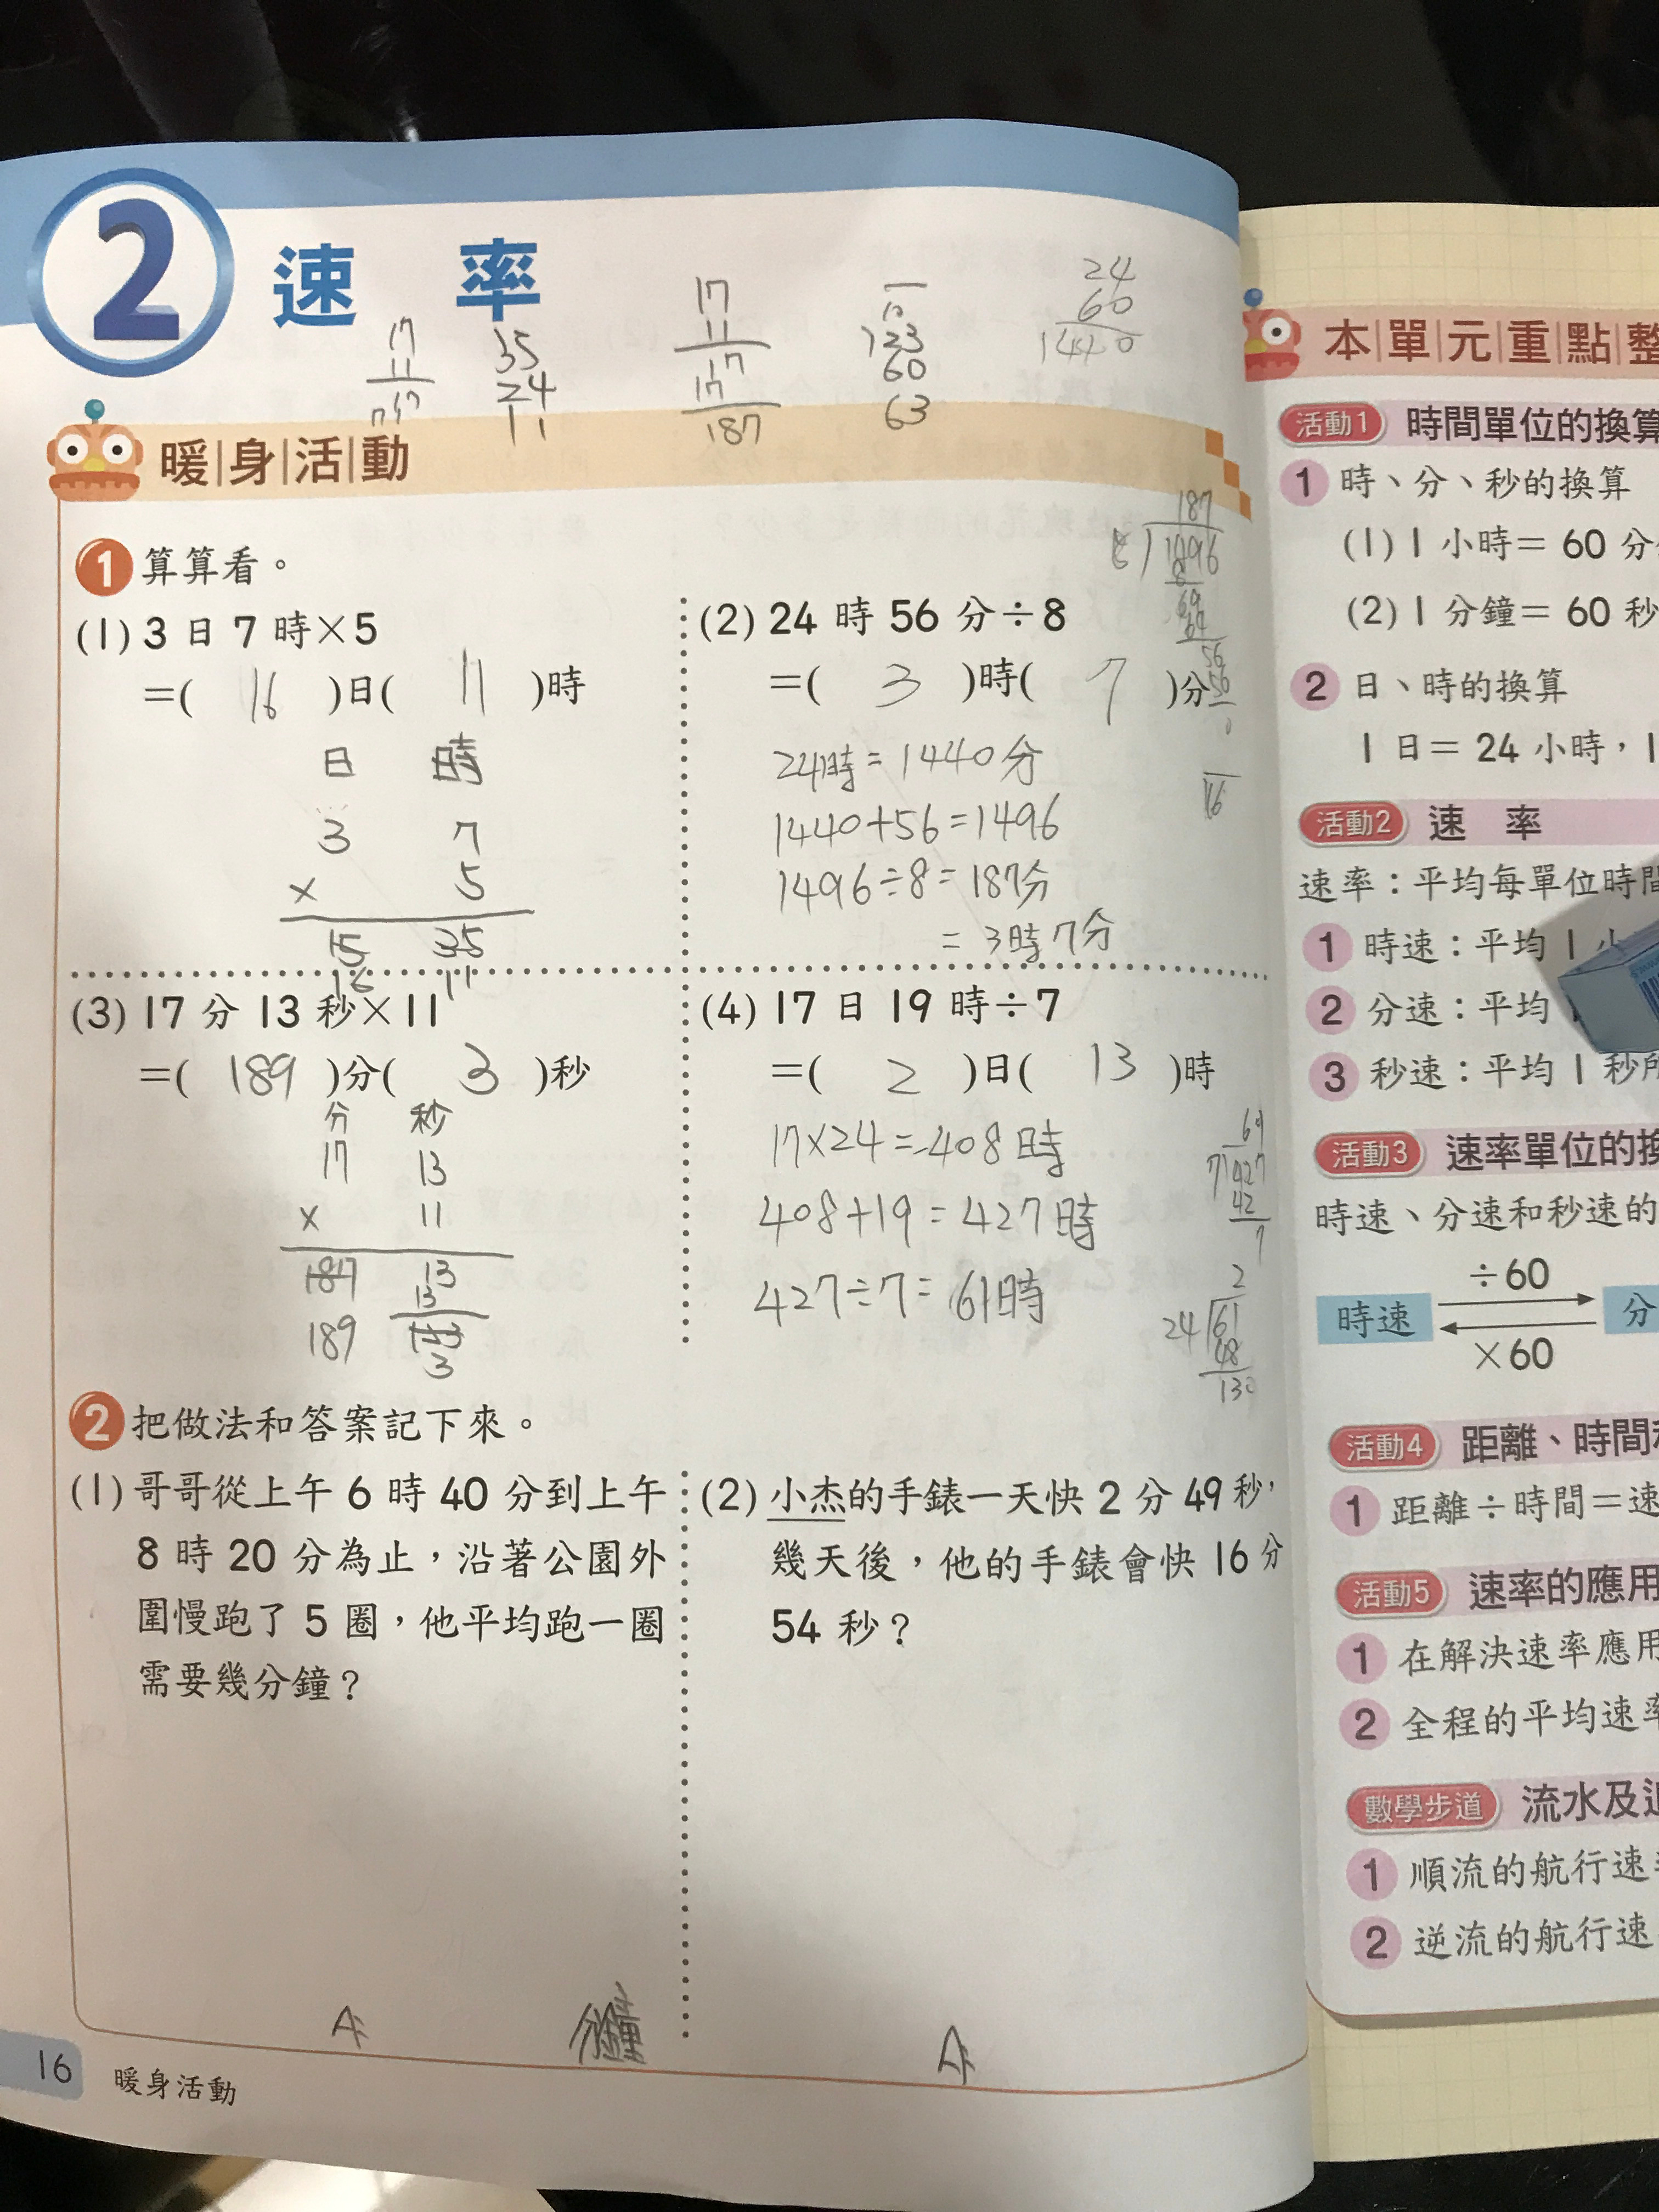 2 速率
17
11
35
24
11
17
11
17
17
187
123
60
63
24
60
1440
暖身活動
1 算算看。
(1) 3 日 7 時×5
=( 16 )日( 11 )時
日 時
3 7
× 5
15 35
16 11
(2) 24 時 56 分÷8
=( 3 )時( 7 )分
24時=1440分
1440+56=1496
1496÷8=187分
=3時7分
187
1496
8
69
64
56
56
0
16
(3) 17 分 13 秒×11
=( 189 )分( 3 )秒
分 秒
17 13
× 11
187 13
13
189
3
(4) 17 日 19 時÷7
=( 2 )日( 13 )時
17×24=408時
408+19=427時
427÷7=61時
61
7 427
42
7
2
24 61
48
13
2 把做法和答案記下來。
(1) 哥哥從上午 6 時 40 分到上午
8 時 20 分為止,沿著公園外
圍慢跑了 5 圈,他平均跑一圈
需要幾分鐘?
A:
分鐘
(2) 小杰的手錶一天快 2 分 49 秒,
幾天後,他的手錶會快 16 分
54 秒?
A:
16 暖身活動
本單元重點整
活動1 時間單位的換算
1 時、分、秒的換算
(1) 1 小時=60 分
(2) 1 分鐘=60 秒
2 日、時的換算
1 日=24 小時,1
活動2 速率
速率:平均每單位時間
1 時速:平均 1 小
2 分速:平均
3 秒速:平均 1 秒所
活動3 速率單位的換
時速、分速和秒速的
÷60
時速 分
×60
活動4 距離、時間
1 距離÷時間=速
活動5 速率的應用
1 在解決速率應用
2 全程的平均速率
數學步道 流水及
1 順流的航行速
2 逆流的航行速